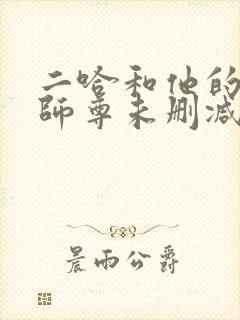 二哈和他的
师尊未删减
晨雨公爵